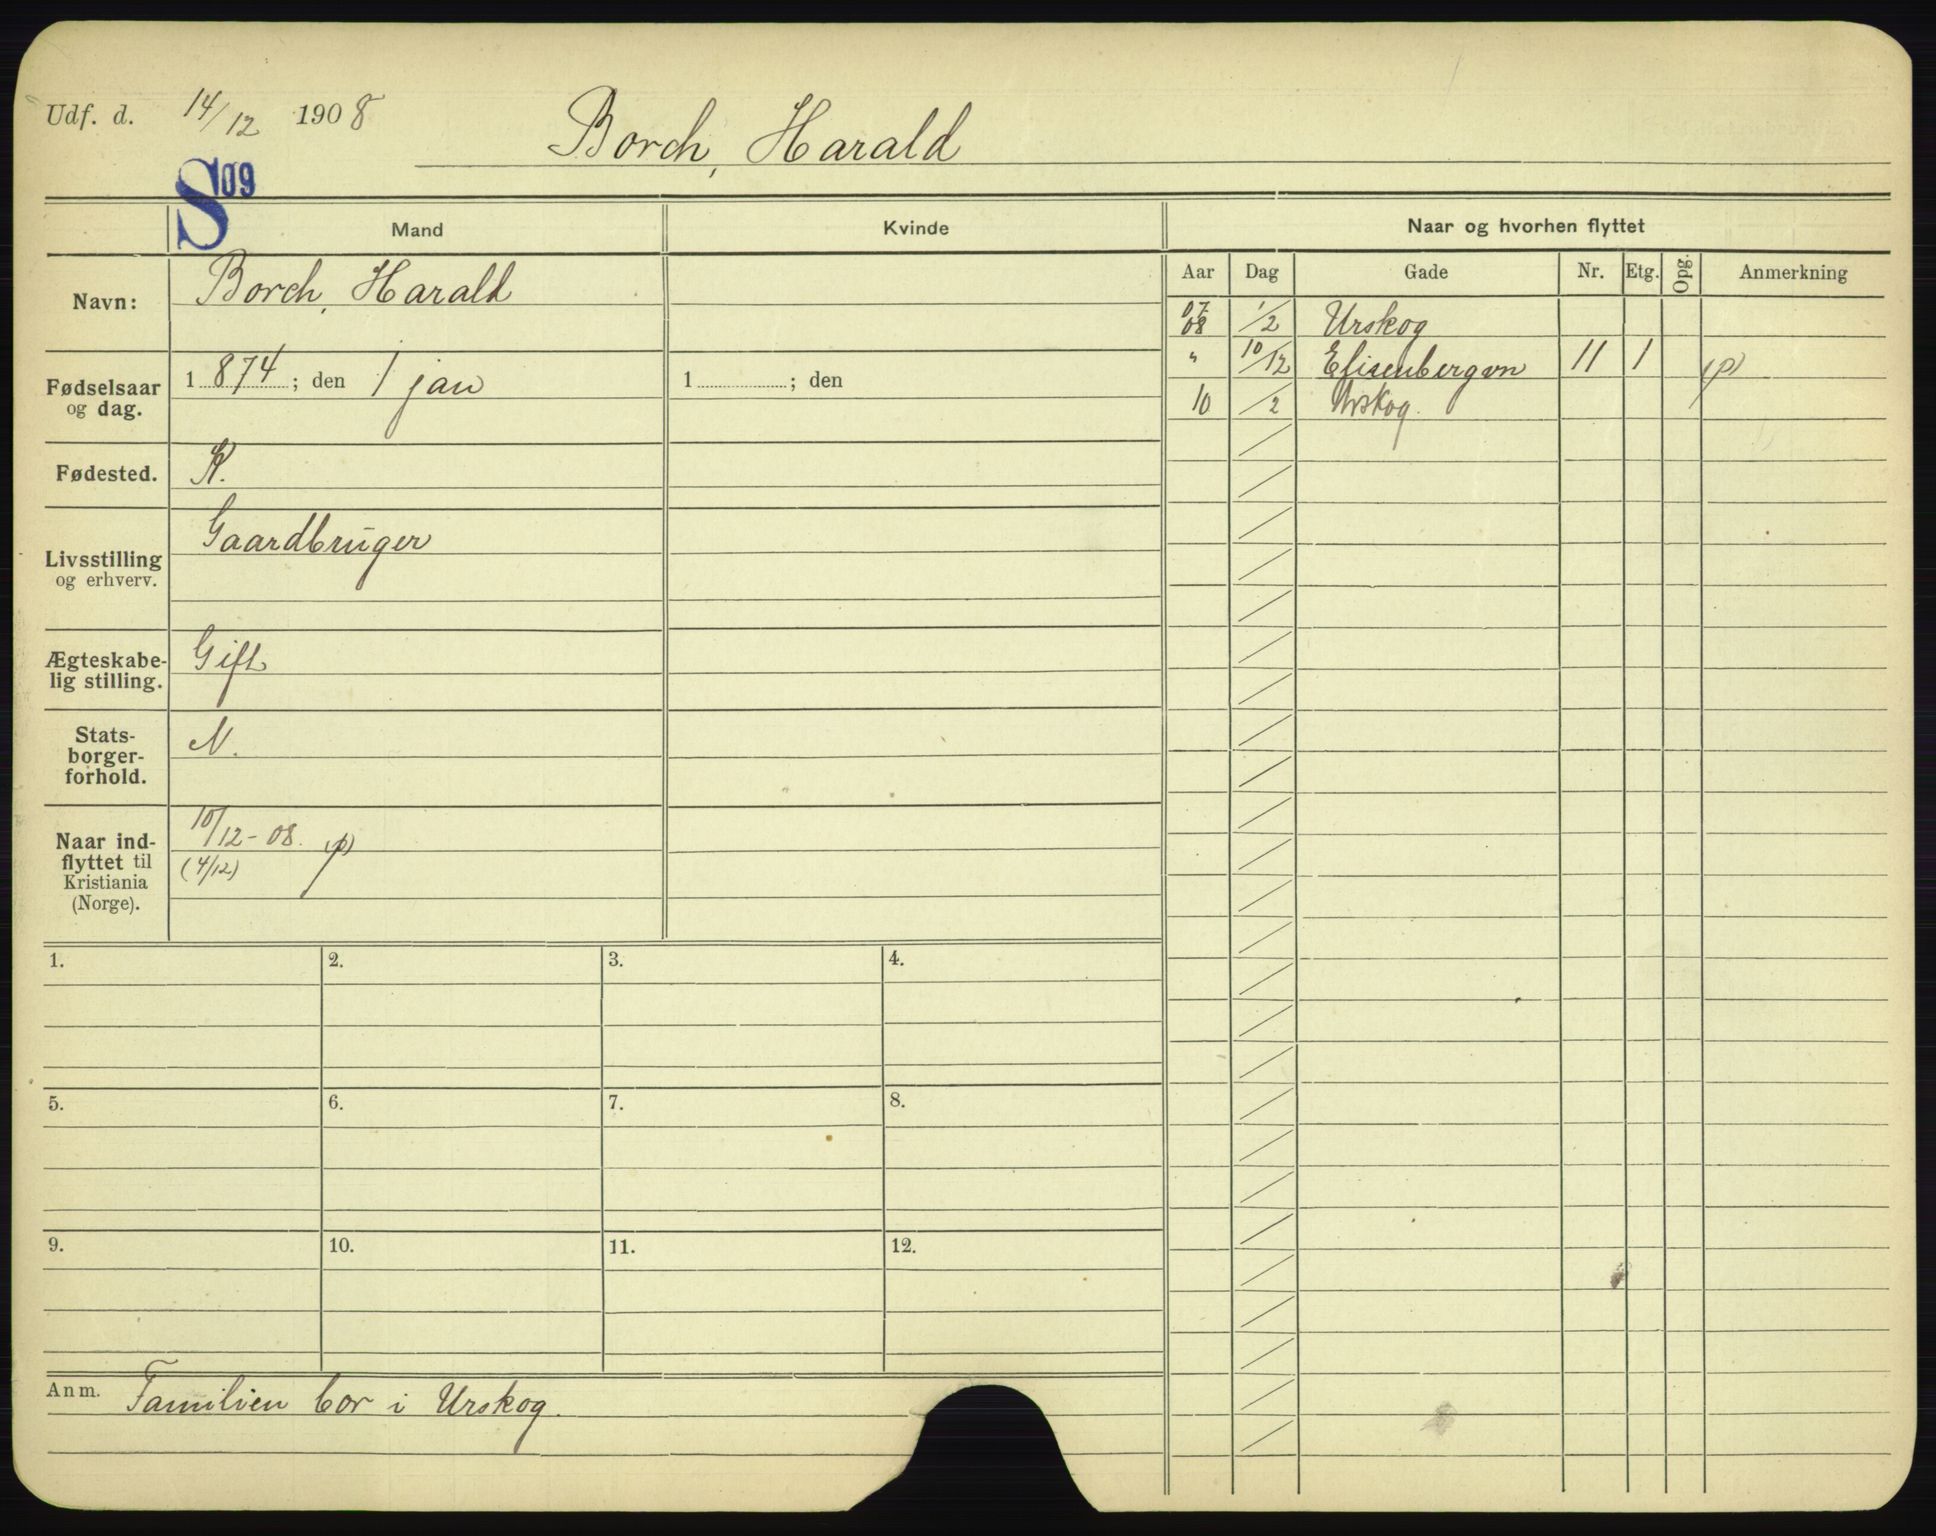 Udf. d. 14/12 1908 Borch, Harald
S 09
Mand Kvinde Naar og hvorhen flyttet
Aar Dag Gade Nr. Etg. Opg. Anmerkning
Navn: Borch, Harald
07/08 1/2 Urskog
" 10/12 Elisenbergvn 11 1 (p)
10 /2 Urskog.
Fødselsaar
og dag.
1 874 ; den 1 jan 1 ; den
Fødested. K.
Livsstilling
og erhverv.
Gaardbruger
Ægteskabe-
lig stilling.
Gift
Stats-
borger-
forhold.
N.
Naar ind-
flyttet til
Kristiania
(Norge).
10/12-08. (p)
(4/12)
1. 2. 3. 4.
5. 6. 7. 8.
9. 10. 11. 12.
Anm. Familien bor i Urskog.